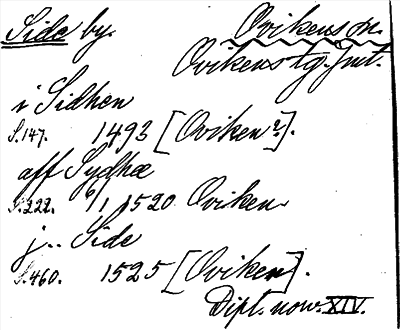 Side by. Ovikens sn.
Ovikens tg. Jmt.
i Sidhen
S. 147. 1493 [Oviken?].
aff Sydhæ
S. 222. 6/1 1520. Oviken
j.. Side
S. 460. 1525 [Oviken].
Dipl. norv. XIV.